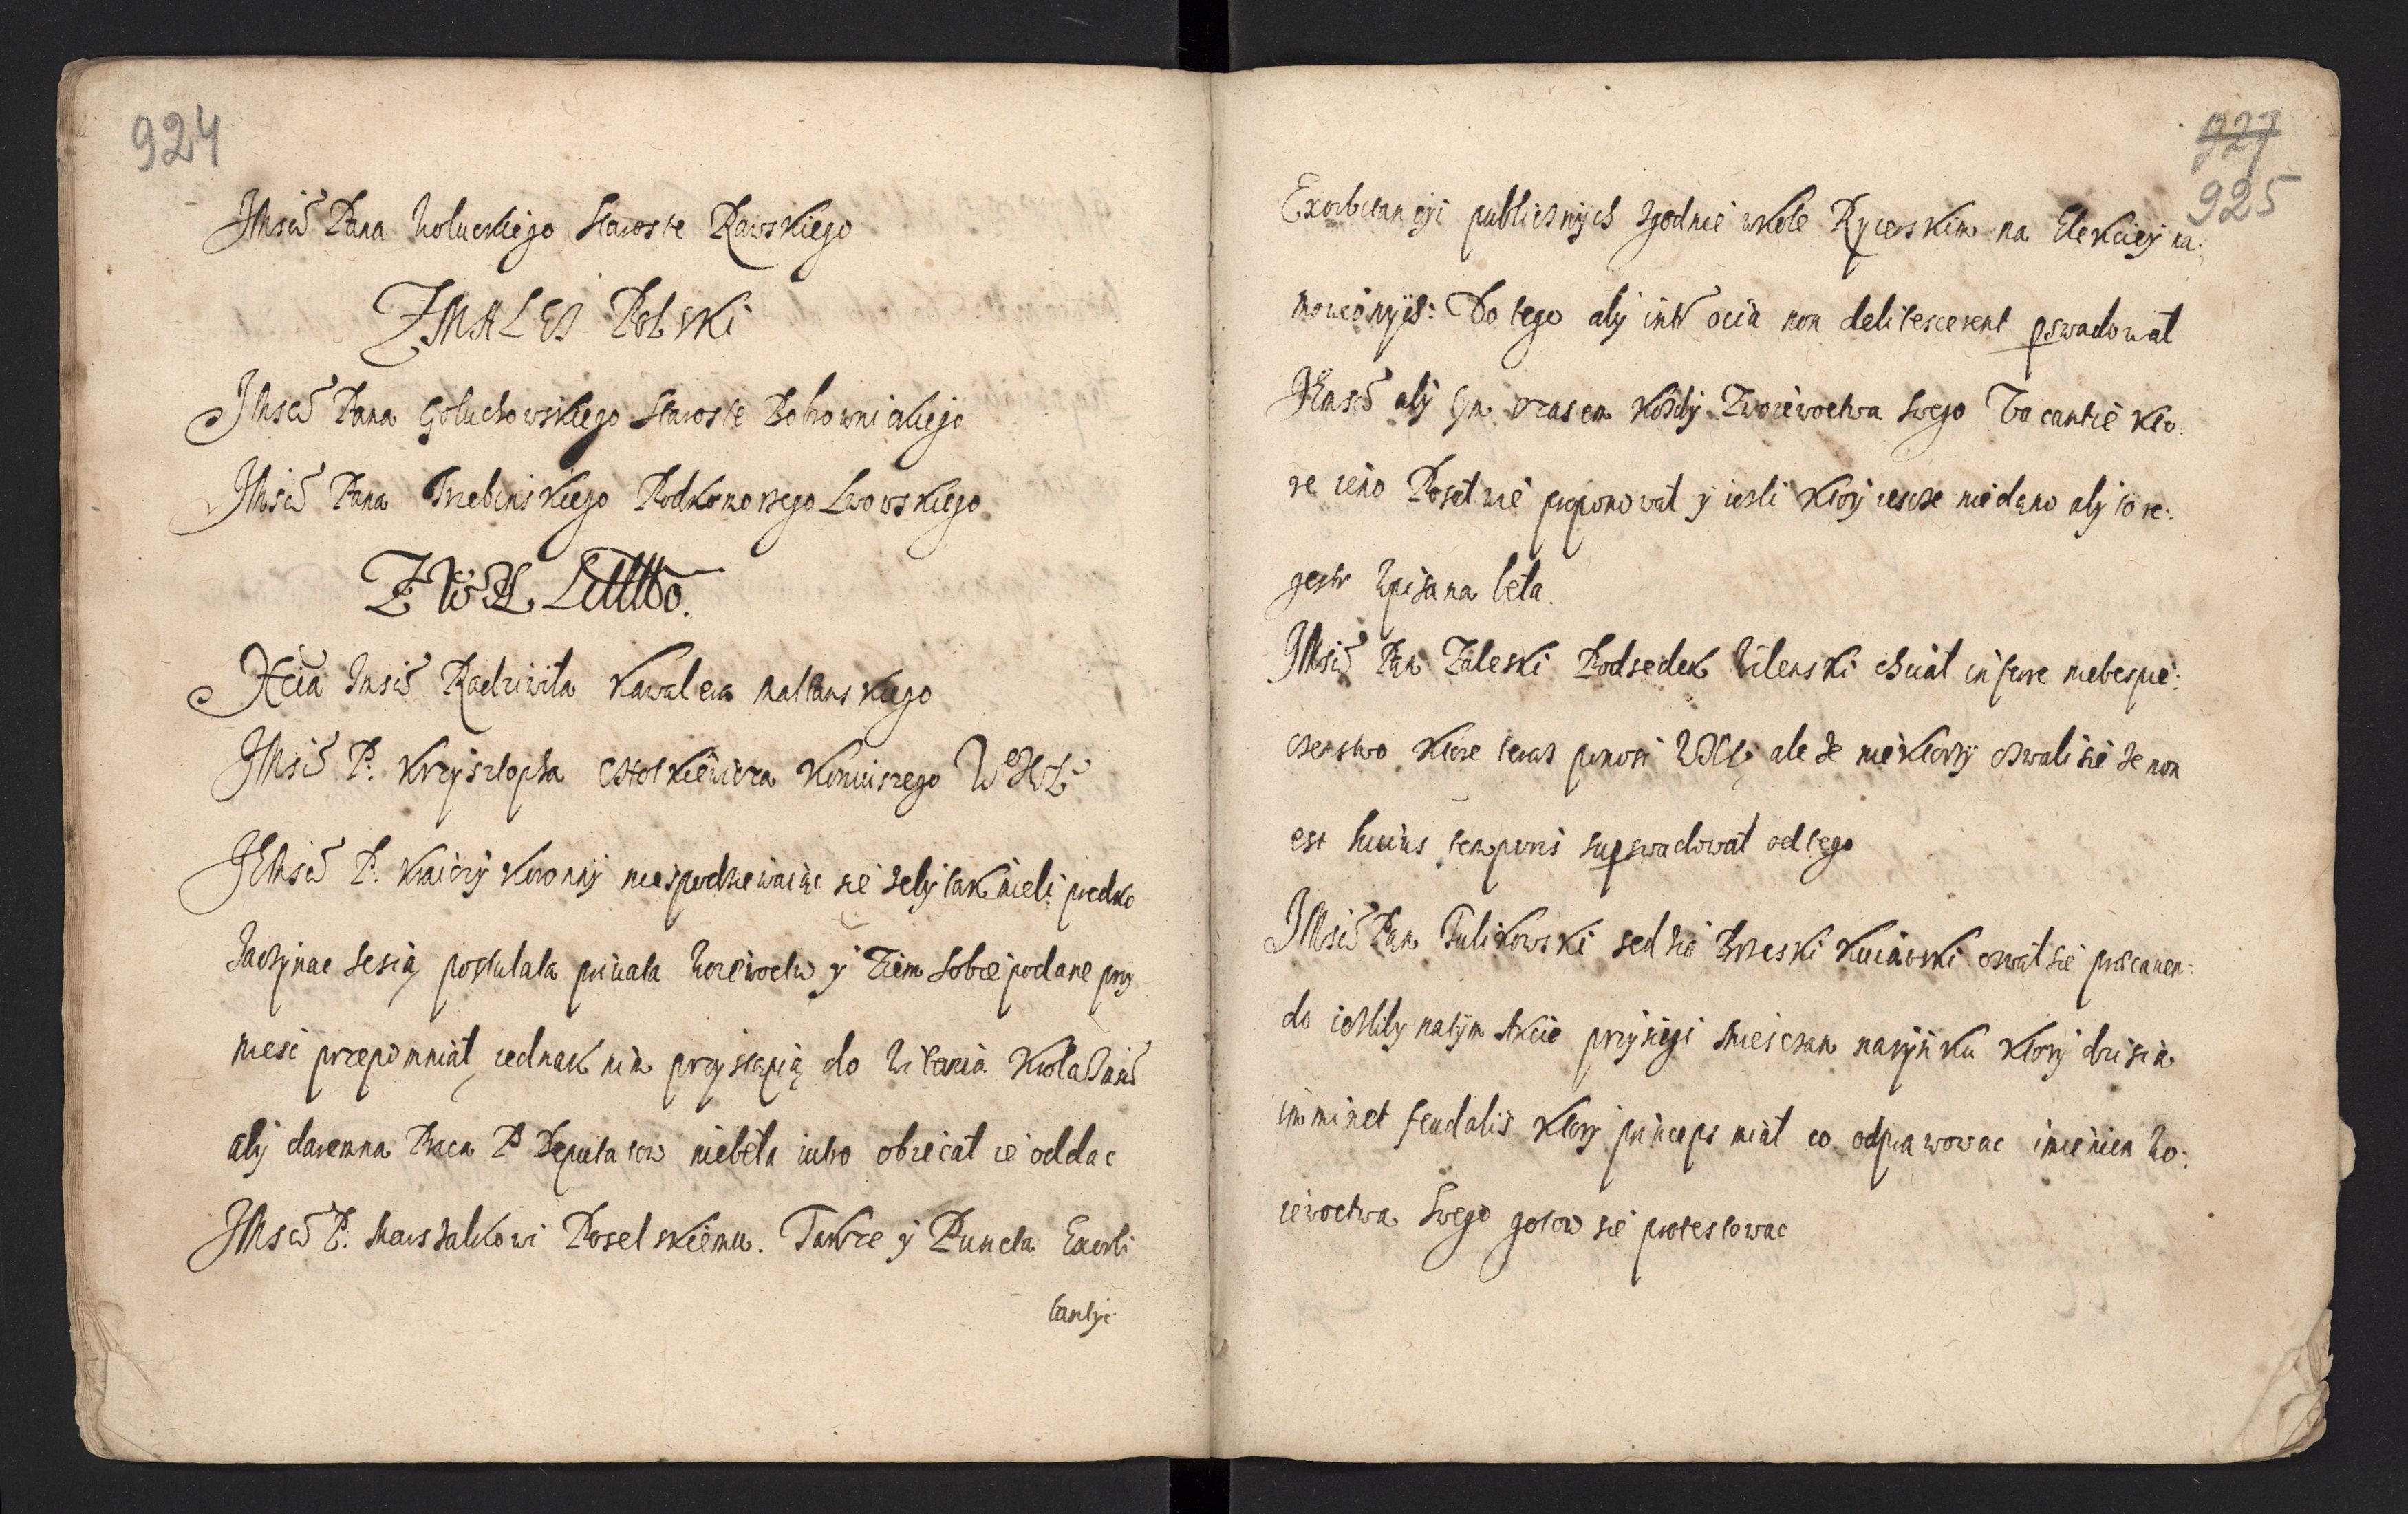 924
JMści Pana Wołuckiego Staroste Rawskiego
Z MAŁEJ Polski
JMści Pana Gołuchowskiego Staroste Bobrownickiego
JMści Pana Trzebinskiego Podkomorzego Lwowskiego
Z W. X. Littto.
Xcia Jmści Radziwiła Kawalera Maltanskiego
JMści P. Krzysztopha Chotkiewicza Koniuszego W X L
JEMści P. Kraiczy Koronny niespodziewaiąc sie zeby tak mieli predko
zaczynac sesią, postulata priuata Woiewodztw y Ziem sobie podane przy
niesc przepomniał, iednak nim przystąpią do Witania Krola Jmści
aby daremna Praca PP Deputatow niebeła iutro obiecał ie oddac
JMści P. Marszalkowi Poselskiemu. Takze y Puncta Exorbi
tantyi
927
925
Exorbitancyi publicznych zgodnie w kole Rycerskim na Elekciey na:
mowionych: Do tego aby intr ocia non delitescerent pswadował
JEmści aby tym czasem kozdy z Woiewoctwa swego Vacantie kto:
re ieno Poseł wie proponował y iesli ktory iescze niedano aby to re:
gestr wpisana beła.
JMści Pan Zaleski Podsedek Wilenski chciał inferre niebespie:
czenstwo ktore teraz ponosi WXL, ale ze niektorzy ozwali sie ze non
est huius temporis supswadował od tego
JMści Pan Tulikowski sedzia Brzeski Kuiawski ozwał sie precauen:
do iezliby na tym Akcie przysiegi Miesczan na rynku ktory dzisia
imminet feudalis ktory princeps miał co odprawowac imieniem Wo:
iewoctwa Swego gotow sie protestowac